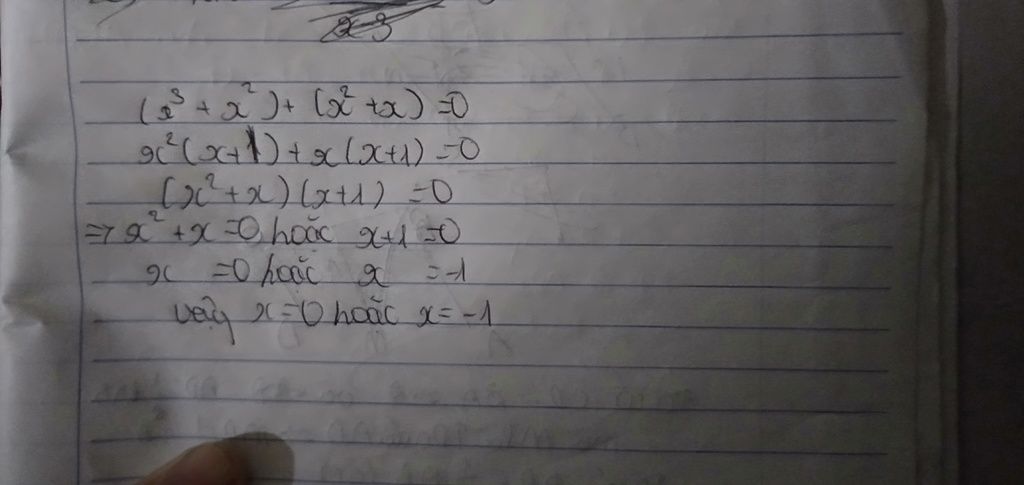 x-3
(x³ + x²) + (x² + x) = 0
x²(x+1) + x(x+1) = 0
(x² + x)(x+1) = 0
=> x² + x = 0 hoặc x+1 = 0
x = 0 hoặc x = -1
vậy x = 0 hoặc x = -1